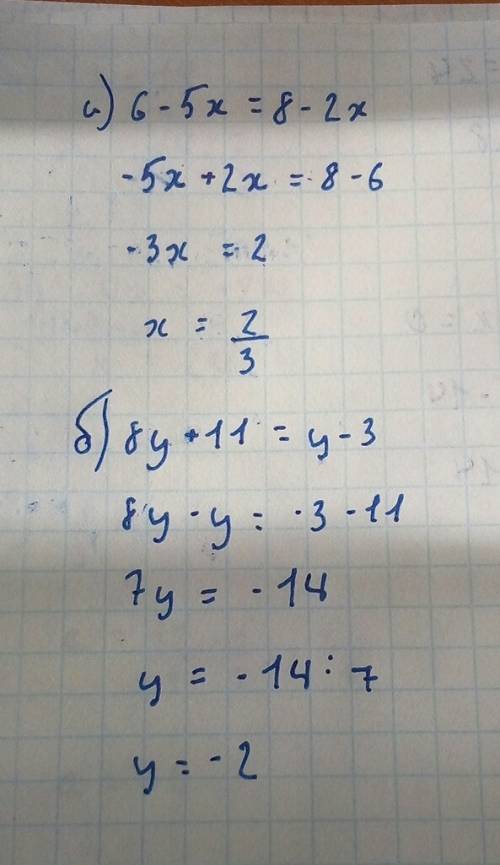 а) 6 - 5x = 8 - 2x
-5x + 2x = 8 - 6
-3x = 2
x = 2/3
б) 8y + 11 = y - 3
8y - y = -3 - 11
7y = -14
y = -14 : 7
y = -2